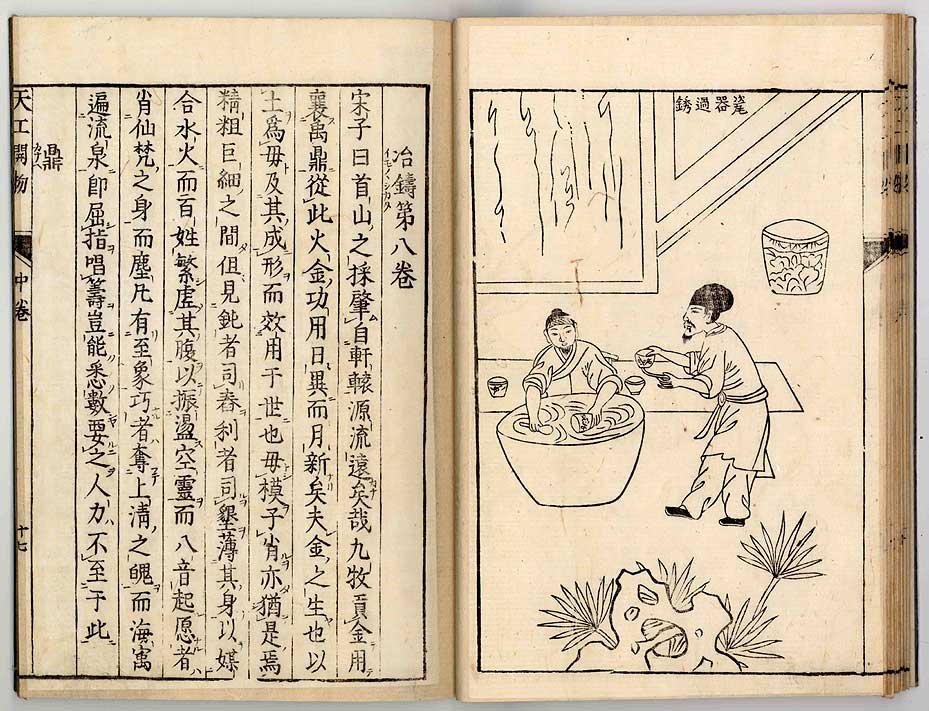 瓷器過銹
冶鑄第八卷
宋子曰首山之採肇自軒轅源流遠矣哉九牧貢金用
襄禹鼎從此火金功用日異而月新矣夫金之生也以
土爲母及其成形而效用于世也母模子肖亦猶是焉
精粗巨細之間但見鈍者司舂利者司墾薄其身以媒
合水火而百姓繁虛其腹以振盪空靈而八音起愿者
肖仙梵之身而塵凡有至象巧者奪上清之魄而海寓
遍流泉卽屈指唱籌豈能悉數要之人力不至于此
鼎
天工開物 中卷 十七